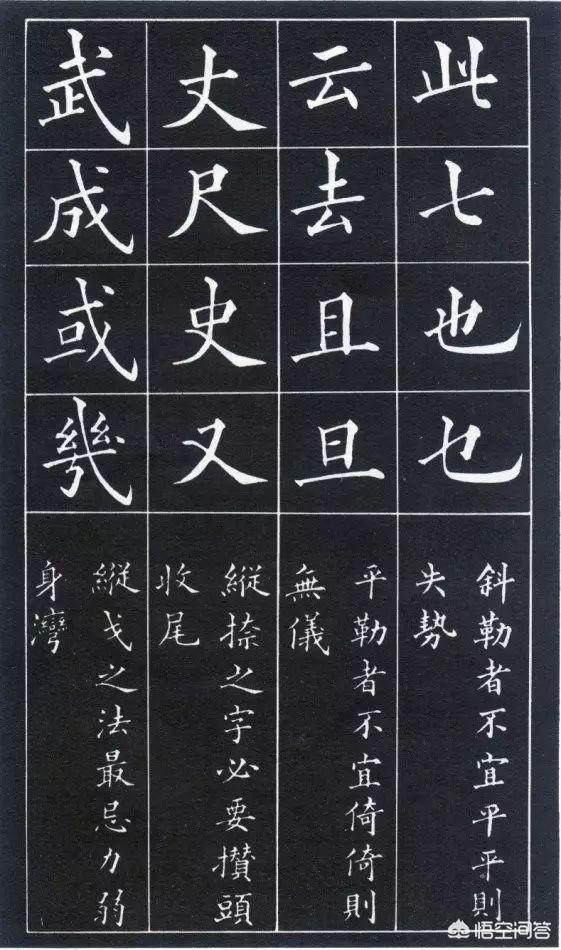 此七也乜
斜勒者不宜平平則
失勢
云去且旦
平勒者不宜倚倚則
無儀
丈尺史又
縱捺之字必要攅頭
收尾
武成或幾
縱戈之法最忌力弱
身灣
悟空问答